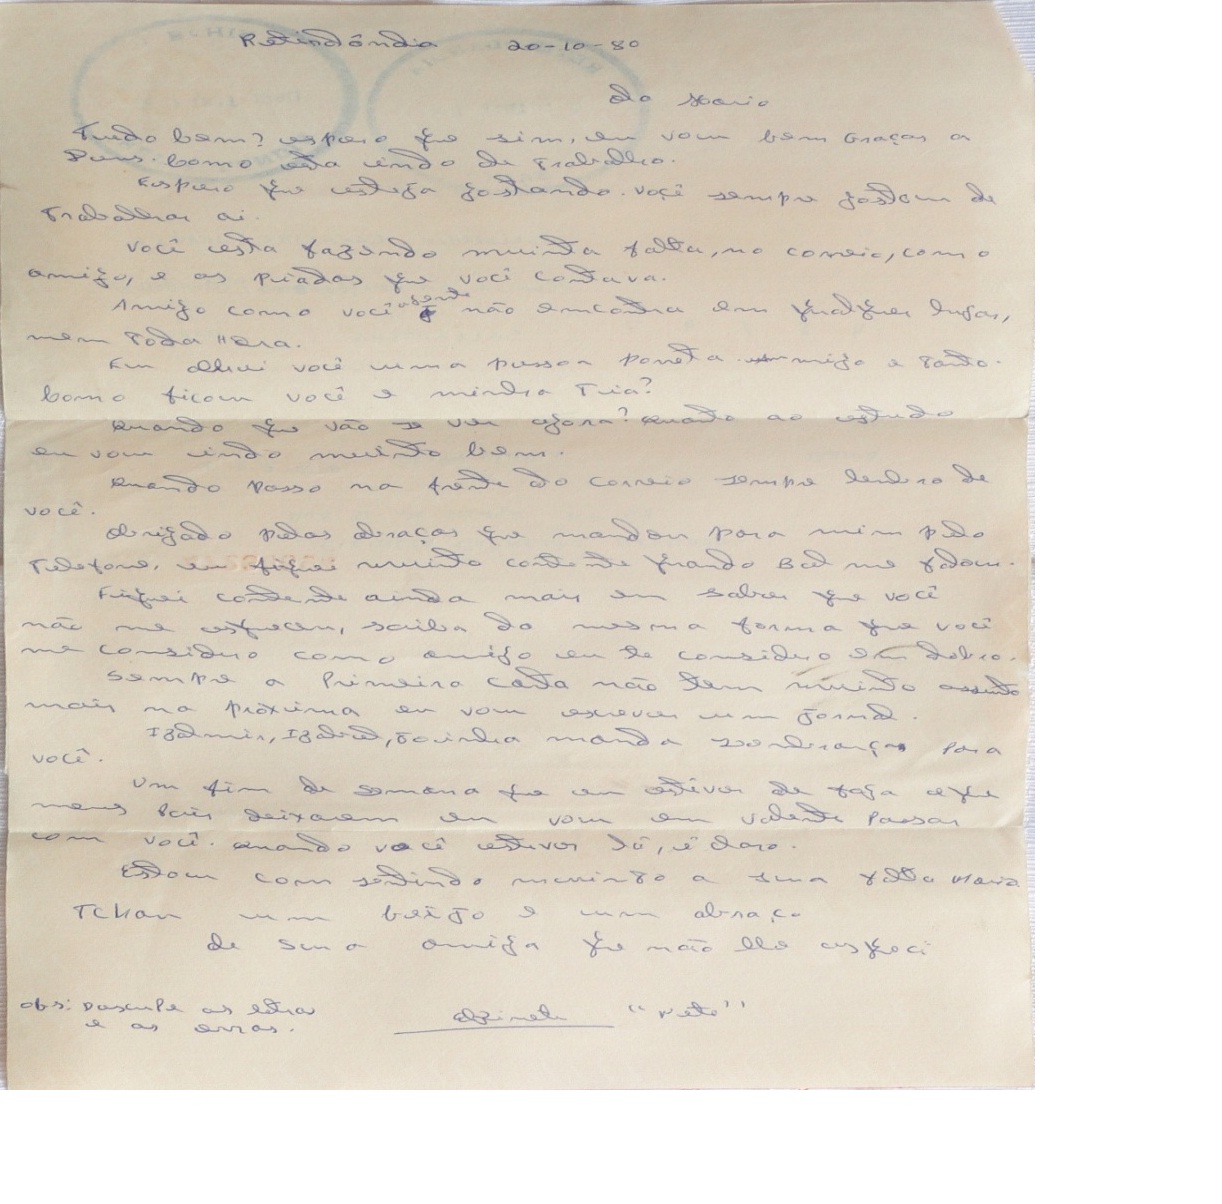 Petindôndia 20-10-80
Ao Mario
Tudo bem? espero que sim, eu vou bem Graças a
Deus. Como esta indo de Trabalho.
Eespero que esteja gostando. você sempre gostou de
Trabalhar ai.
você esta fazendo muinta falta, no correio, como
amigo, e as piadas que você contava.
Amigo como você agente não emcontra em qualquer lugar,
nem Toda Hora.
Eu achei você uma pessoa poreta migo e tanto.
Como ficou você e minha Tia?
Quando que vão se ver agora? Quanto ao estudo
eu vou indo muinto bem.
Quando passo na frente do correio sempre lenbro de
você.
Obrigado pelos abraços que mandou para mim pelo
Telefone, eu fiquei muinto contente quando Bel me falou.
Fiquei contente ainda mais em saber que você
não me esqueceu, saiba da mesma forma que você
me considero como amigo eu te considero em dobro.
Sempre a Primeira carta não tem muinto assunto
mais na próxima eu vou escrever um jornal.
Izalmir, Izabel, Toinha manda lenbranças para
você.
Um fim de semana que eu estiver de folga e que
meus Pais deixarem eu vou em valente Passar
com você. Quando você estiver lá, é claro.
Estou com sentindo muinto a sua falta Mario
Tchau um beijo e um abraço
de sua amiga que não lhe esqueci
obs: Desculpe as letras
e os erros.
"Nete"